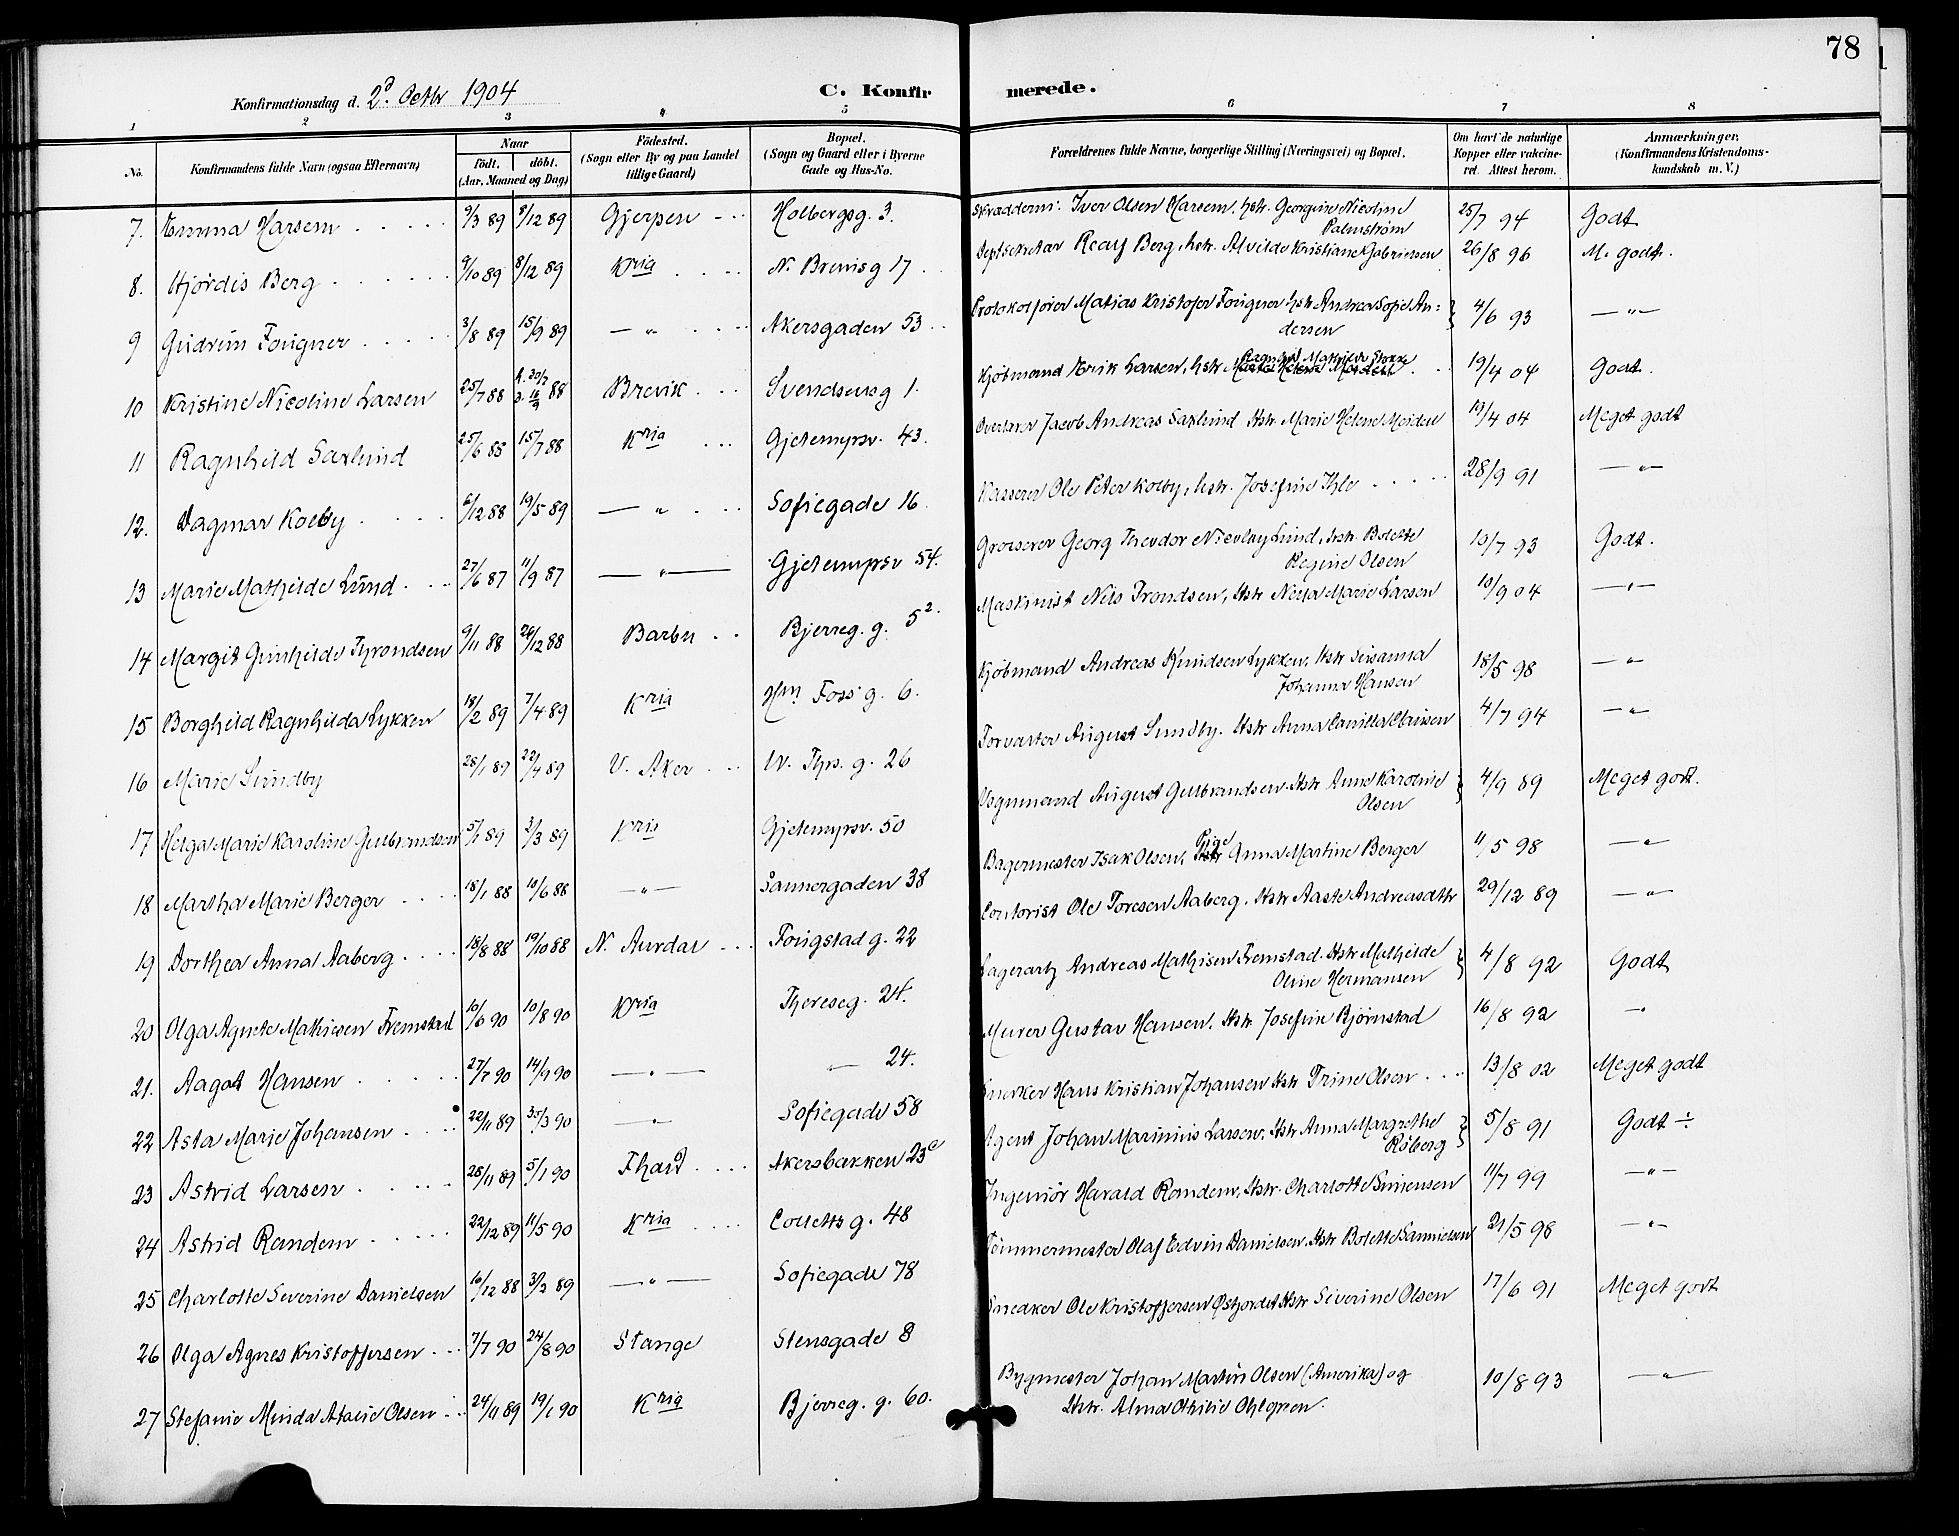 78
Konfirmationsdag d. 2d Octbr 1904
C. Konfirmerede.
1 2 3 4 5 6 7 8
No. Konfirmandens fulde Navn (ogsaa Efternavn) Naar Födt. döbt. (Aar, Maaned og Dag) Födested. (Sogn eller By og paa Landet tillige Gaard) Bopæl. (Sogn og Gaard eller i Byerne Gade og Hus-No. Forældrenes fulde Navne, borgerlige Stilling (Næringsvei) og Bopæl. Om havt de naturlige Kopper eller vakcineret. Attest herom. Anmærkninger. (Konfirmandens Kristendomskundskab m. V.)
7. Emma Harsem 9/3 89 8/12 89 Gjerpen Holbergsg. 3. Skrædderm. Iver Olsen Harsem, hstr. Georgine Nicoline Palmstrøm 25/7 94 Godt
8. Hjördis Berg 9/10 89 8/12 89 Kria N. Brevisg 17 Berg, hstr. Alvilde Kristiane Gabrielsen 26/8 96 M. godt.
9 Gudrun Fougner 3/8 89 15/9 89 — " Akersgaden 53 Protokolfører Matias Kristofer Fougner hstr Andrea Sofie Andersen 4/6 93 — " —
10 Kristine Nicoline Larsen 25/7 88 88 Brevik Svendsensg 1. Kjöbmand Erik Larsen, hstr Ragnhild Mathilde 19/4 04 Godt.
11 Ragnhild Saxlund 25/6 88 15/7 88 Kria Gjetemyrsv. 43. Overlærer Jacob Andreas Saxlund Hstr Marie Helene Meidell 19/4 04 Meget godt
12. Dagmar Kolby 6/12 88 19/5 89 — " Sofiegade 16. Kasserer Ole Peter Kolby, hstr. Josefine Ihle 28/9 91 — " —
13 Marie Mathilde Lund 27/6 87 11/9 87 — " — Gjetemyrsv 54. Grosserer Georg Theodor Nicolay Lund, Hstr Bolette Regine Olsen 10/7 93 Godt.
14 Margit Gunhilde Throndsen 9/11 88 26/12 88 Barbu Bjerreg. g. 5 2. Maskinist Nils Trondsen, Hstr Nella Marie Larsen 10/9 04 — " —
15 Borghild Ragnhilda Lykken 18/2 89 7/4 89 Kria Hm Foss g. 6. Kjöbmand Andreas Knudsen Lykken, Hstr Susanna Johanna Hansen 18/5 98 — " —
16 Marie Sundby 28/1 89 22/4 89 V. Aker W. Thrs. g. 26 Forvalter August Sundby. Hstr Anna Camilla Clausen 4/7 94 — " —
17 Helga Marie Karoline Gulbrandsen 5/1 89 3/3 89 Kria Gjetemyrsv. 50 Vognmand August Gulbrandsen Hstr Anne Karoline Olsen 4/9 89 Meget godt.
18 Martha Marie Berger 18/1 88 10/6 88 — " — Sannergaden 38 Bagermester Isak Olsen, Pige Anna Martine Berger 11/5 98 — " —
19 Dorthea Anna Aaberg 18/8 88 19/10 88 N. Aurdal Fougstad g. 22 Contorist Ole Toresen Aaberg, Hstr Aaste Andreasdtr 29/12 89 — " —
20 Olga Agnete Mathisen Fremstad 10/6 90 10/8 90 Kria Thereseg. 24. Lagerarb Andreas Mathisen Fremstad. Hstr Mathilde Oline Hermansen 4/8 92 Godt
21. Aagot Hansen 27/7 90 14/9 90 — " — — 24. Murer Gustav Hansen. Hstr Josefine Bjørnstad 16/8 92 — "
22 Asta Marie Johansen 22/11 89 30/3 90 — " Sofiegade 58 Snekker Hans Kristian Johansen Hstr Trine Olsen 13/8 02 Meget godt
23 Astrid Larsen 28/11 89 5/1 90 Thand Akersbakken 23 c Agent Johan Marinius Larsen, Hstr Anna Margrethe Röberg 5/8 91 Godt ÷
24 Astrid Ramdem 22/12 89 11/5 90 Kria Colletts g. 48 Ingeniör Harald Ramdem, Hstr. Charlotte Simensen 11/7 99 — " —
25 Charlotte Severine Danielsen 16/12 88 3/2 89 — " — Sofiegade 78 Tømmermester Olaf Edvin Danielsen. Hstr Bolette Samuelsen 21/5 98 — " —
26 Olga Agnes Kristoffersen 7/7 90 24/8 90 Stange Stensgade 8 Snedker Ole Kristoffersen Østjordet Hstr Siverine Olsen 17/6 91 Meget godt
27 Stefanie Minda Atalie Olsen 24/11 89 19/1 90 Kria Bjerreg. g. 60. Bygmester Johan Martin Olsen (Amerika) og Hstr. Alma Othilie Ohlgren. 10/8 93 — " —